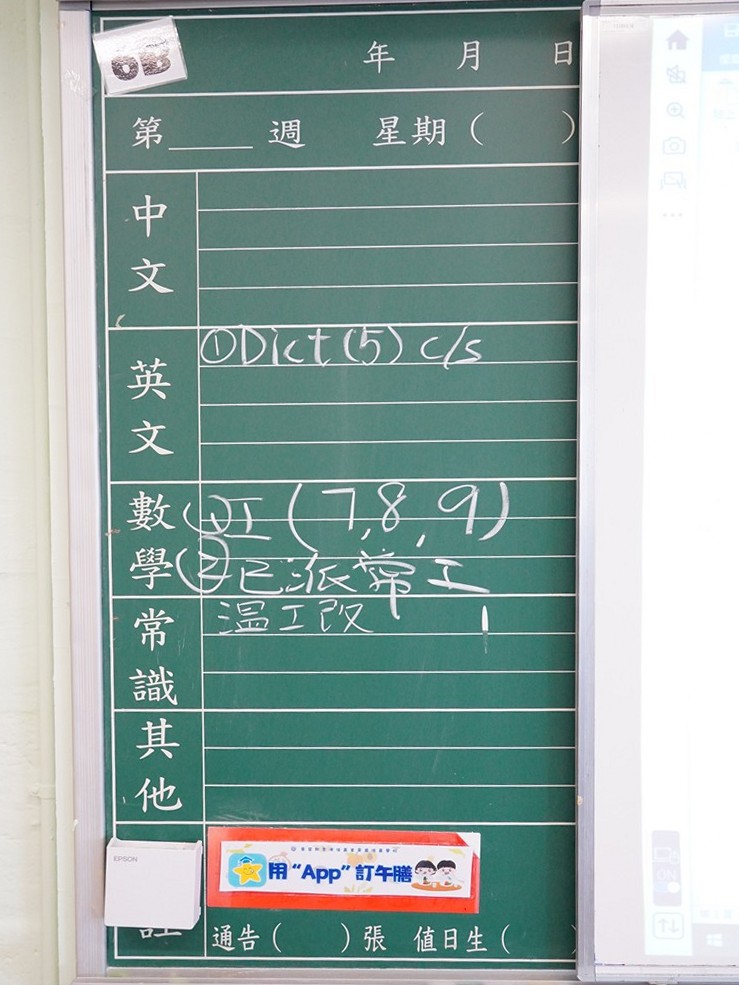 6B
年 月 日
第____週 星期( )
中文
英文
①Dict(5) c/s
數學
①工(7,8,9)
②已派常工
常識
溫工改
其他
EPSON
用“App”訂午膳
通告( )張 值日生(
ON